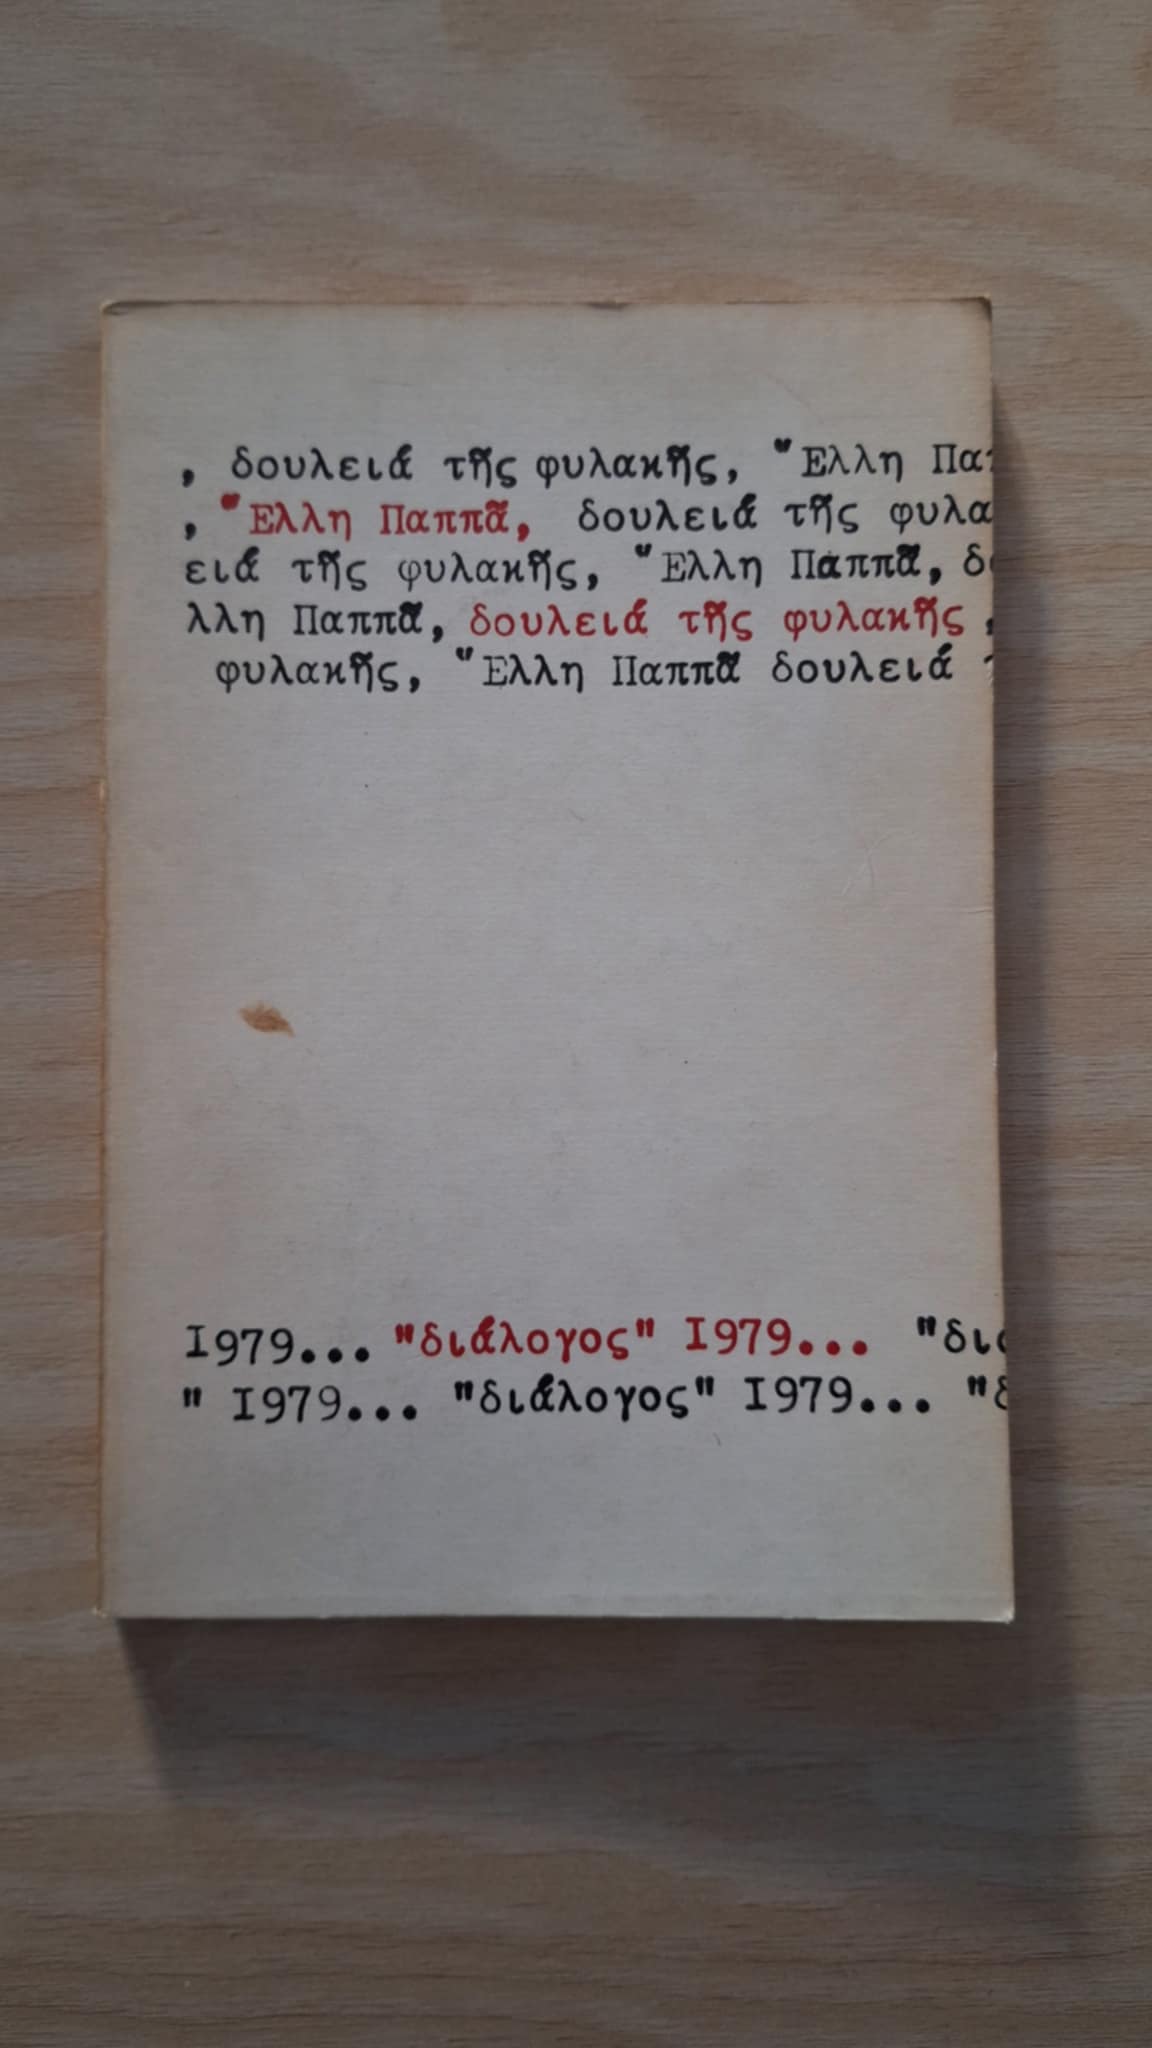 , δουλειά τῆς φυλακῆς, Ἕλλη Παπ
, Ἕλλη Παππᾶ, δουλειά τῆς φυλα
ειά τῆς φυλακῆς, Ἕλλη Παππᾶ, δο
λλη Παππᾶ, δουλειά τῆς φυλακῆς ,
φυλακῆς, Ἕλλη Παππᾶ δουλειά
1979... "διάλογος" 1979... "διά
" 1979... "διάλογος" 1979... "δ